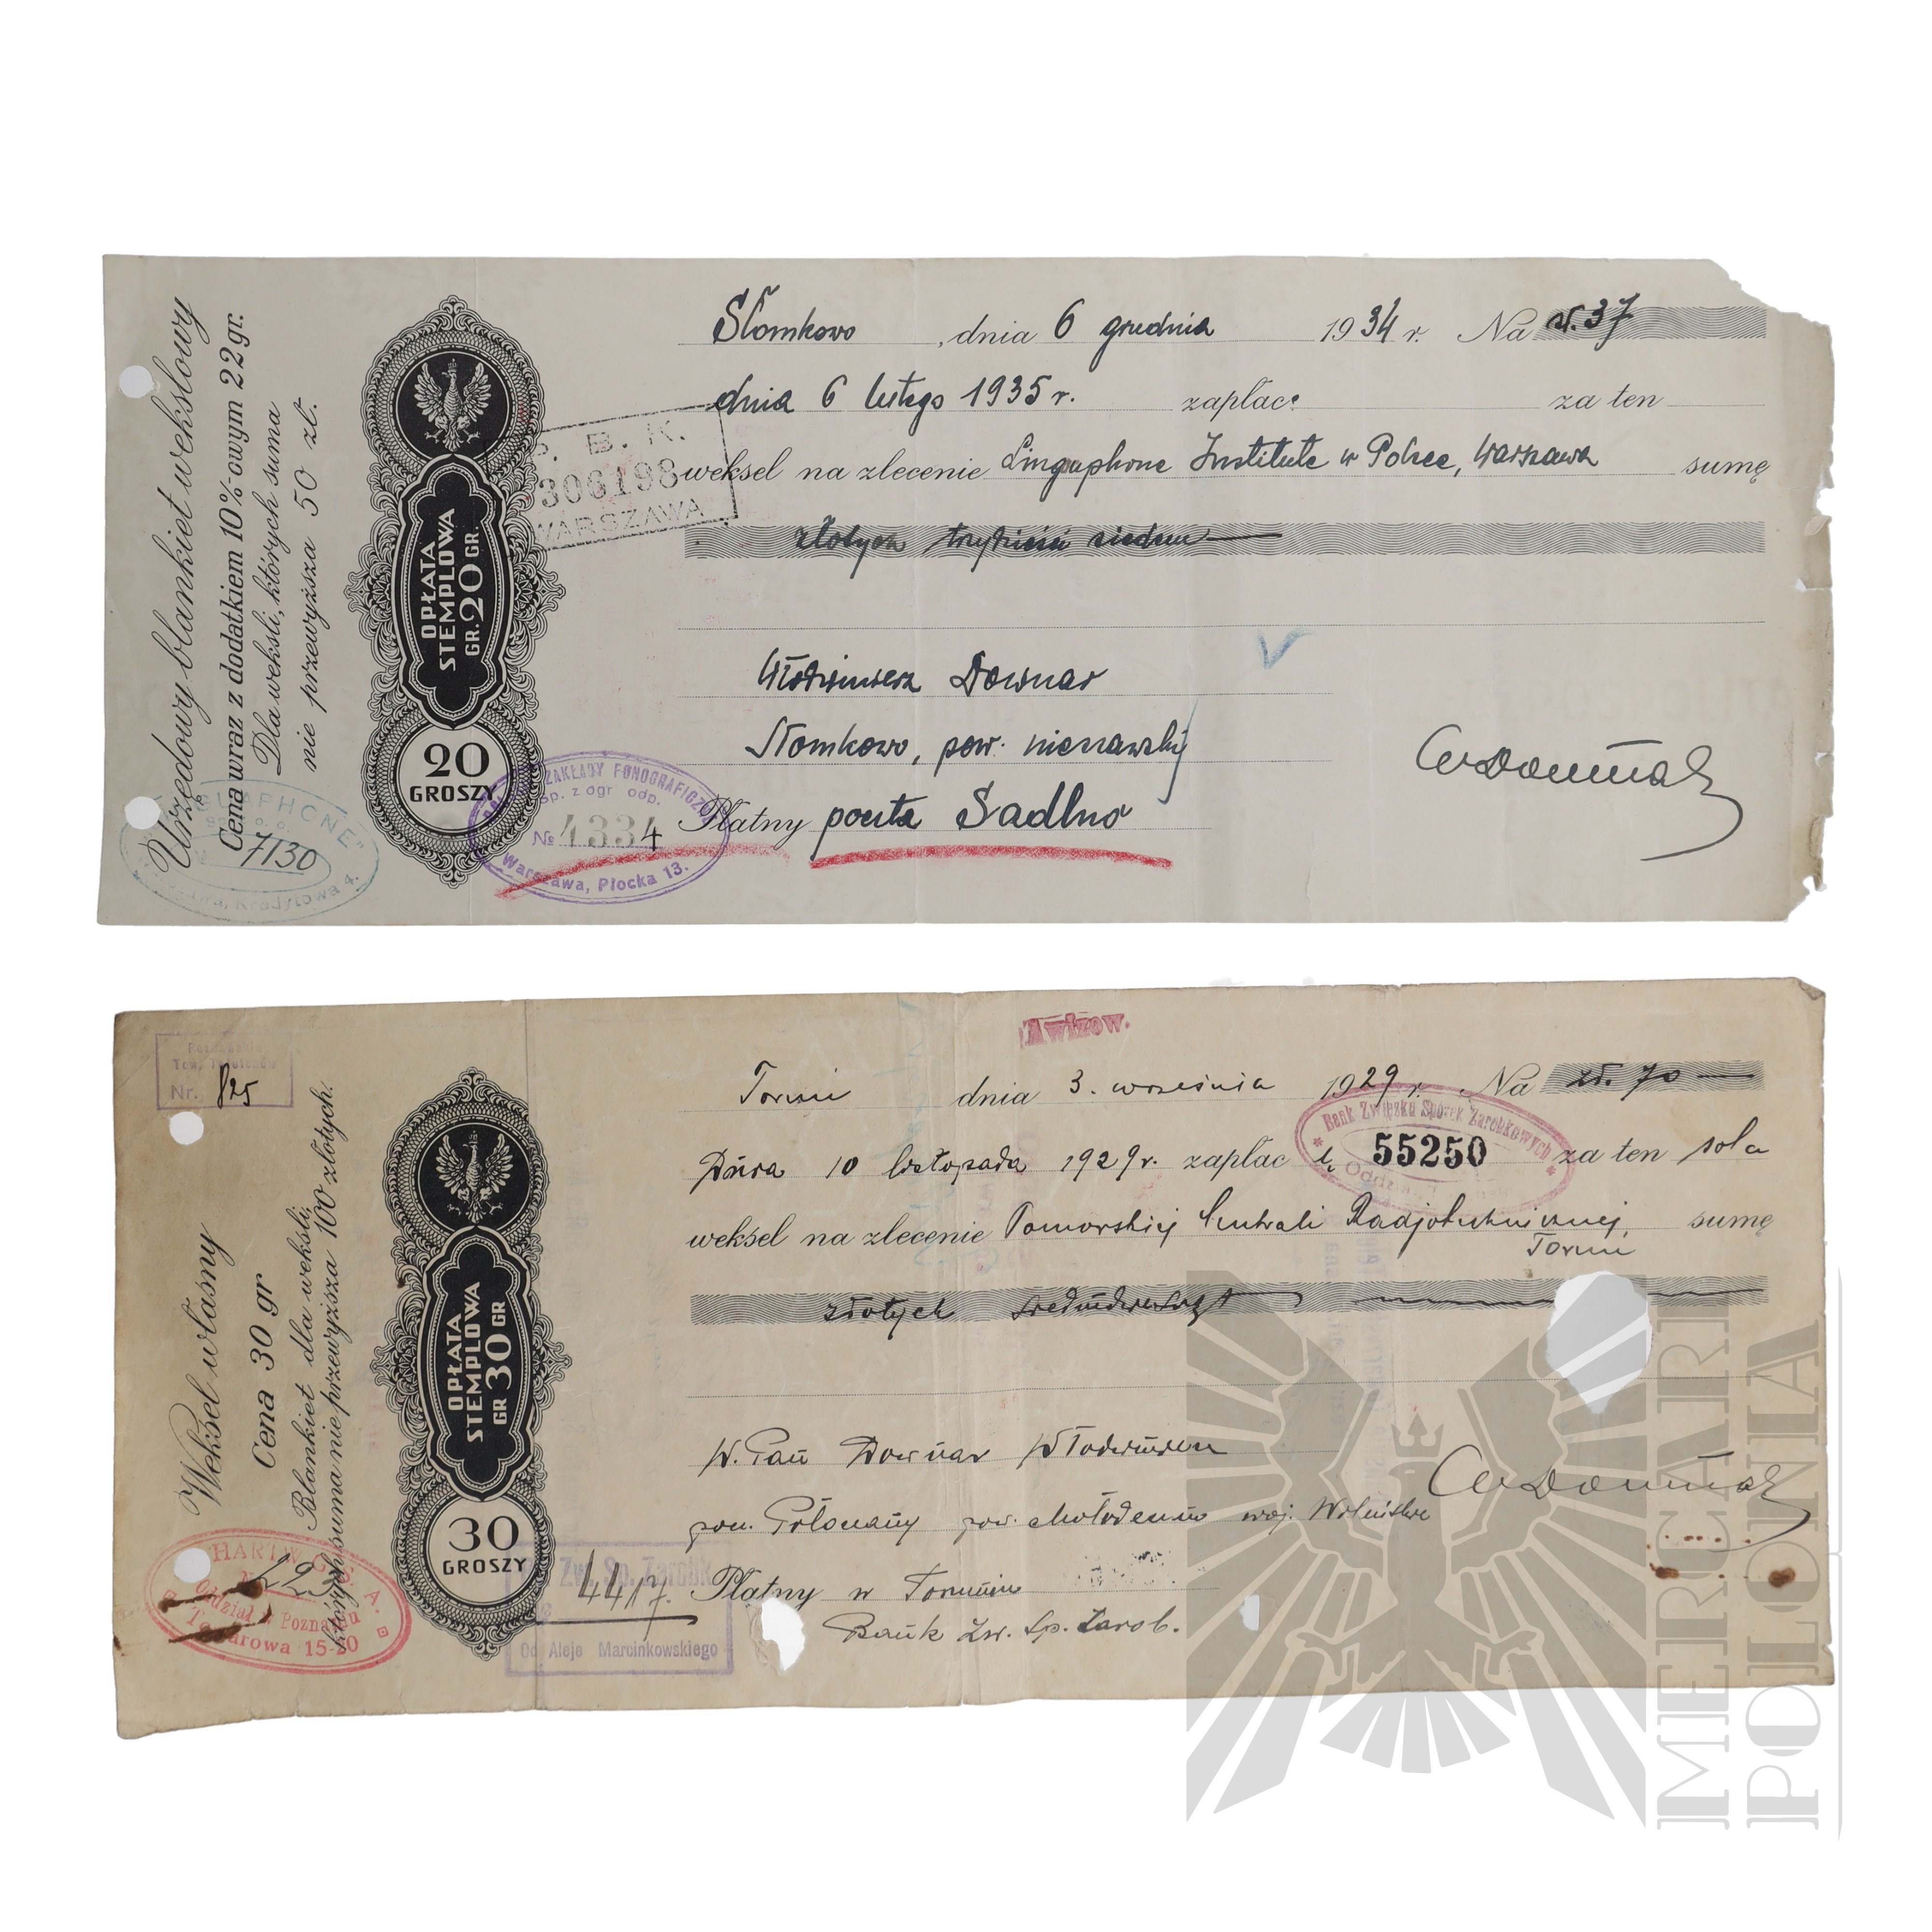 Urzędowy blankiet wekslowy
Cena wraz z dodatkiem 10%-owym 22 gr.
Dla weksli, których suma
nie przewyższa 50 zł.
OPŁATA
STEMPLOWA
GR. 20 GR.
20
GROSZY
B. K.
306198
WARSZAWA
Słomkowo, dnia 6 grudnia 1934 r. Na zł. 37
dnia 6 lutego 1935 r. zapłacę za ten
weksel na zlecenie Linguphone Institute w Polsce, Warszawa sumę
złotych trzydzieści siedem
Włodzimierz Downar
Słomkowo, pow. nieszawski
Płatny poczta Sadlno
WDownar
7130
Kredytowa 4.
ZAKŁADY FONOGRAFICZNE
Sp. z ogr. odp.
№ 4334
Warszawa, Płocka 13.
Awizow.
Nr. 825
Weksel własny
Cena 30 gr
Blankiet dla weksli,
których suma nie przewyższa 100 złotych.
OPŁATA
STEMPLOWA
GR 30 GR
30
GROSZY
Toruń dnia 3. września 1929 r. Na zł. 70
Bank Związku Spółek Zarobkowych
55250
Dnia 10 listopada 1929 r. zapłacę za ten sola
weksel na zlecenie Pomorskiej Centrali Radjotechnicznej, sumę
Toruń
złotych siedmdziesiąt
W. Pan Downar Włodzimierz
pow. mołodeczno woj. Wileńskie
Płatny w Toruniu
Bank Zw. Sp. Zarob.
WDownar
HARTWIG S. A.
Oddział w Poznaniu
Towarowa 15-20
Zw. Sp. Zarobk.
4417.
Aleje Marcinkowskiego
MERCARI
POLONIA